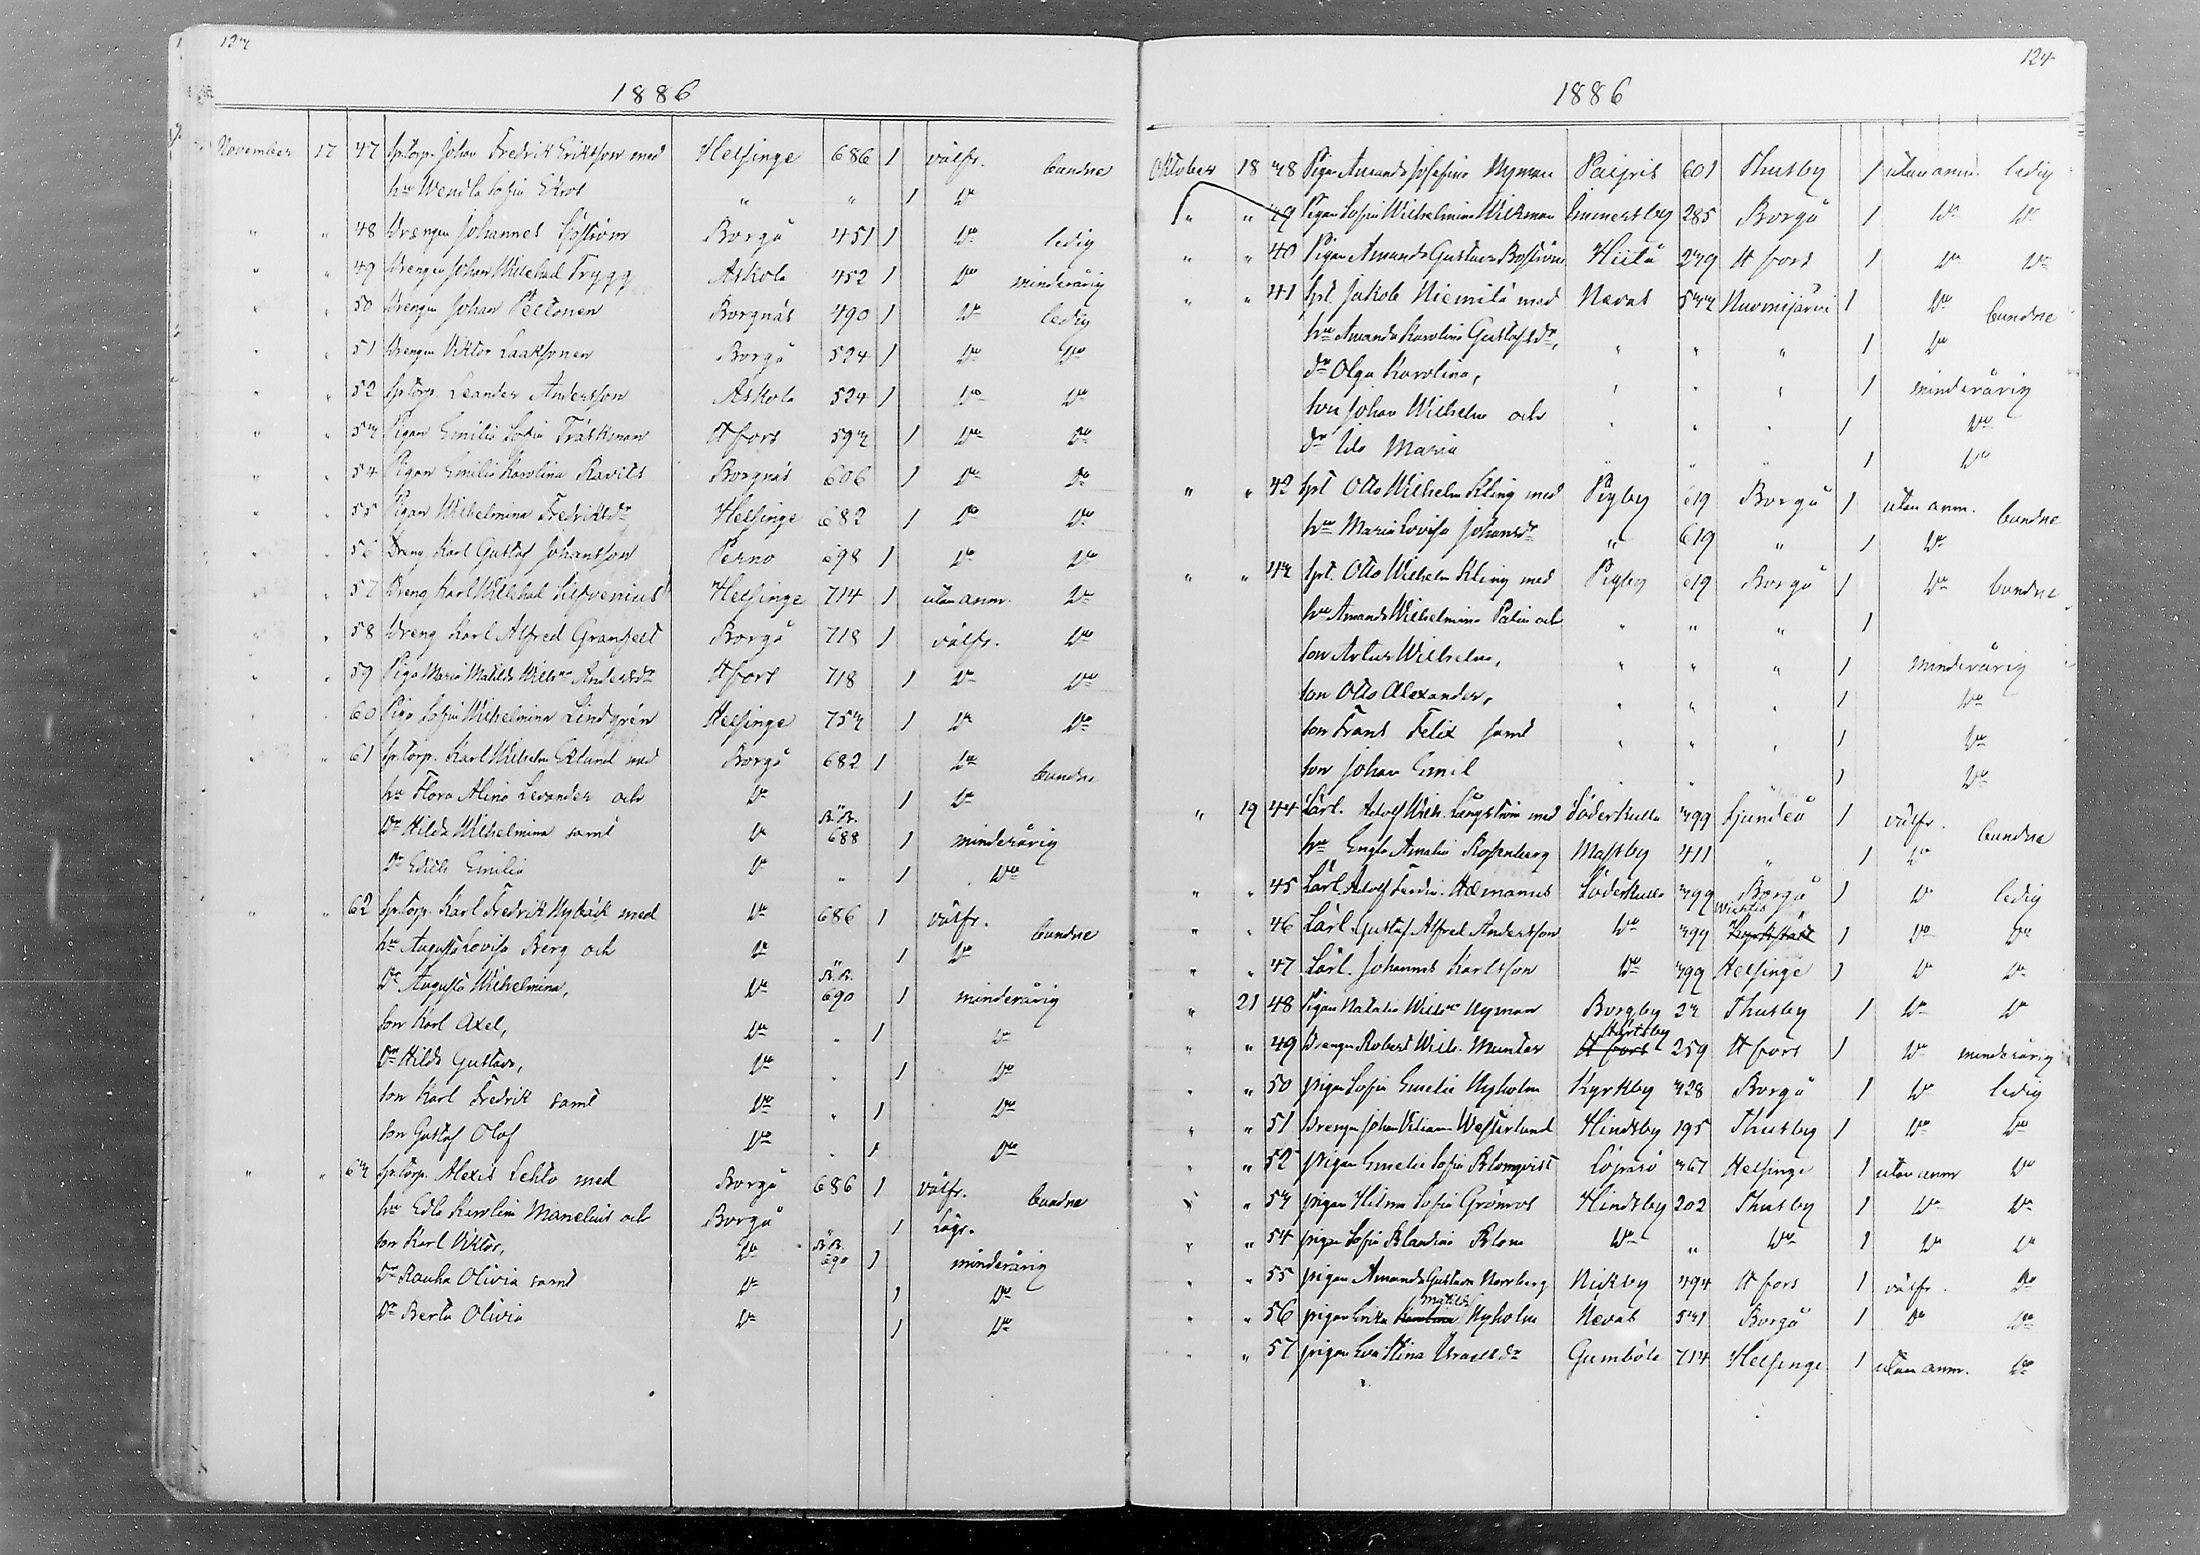 123
1886
November 17 47 sptorp. Johan Fredrik Eriksson med Helsinge 686 1 välfr. bundne
hu Wendla Sofia Ekros " " 1 Do
" " 48 Drengen Johannes Sjöström Borgå 451 1 Do ledig
" " 49 Drengen Johan Wilehad Trygg Askola 452 1 Do minderårig
" " 50 Drengen Johan Peltonen Borgnäs 490 1 Do ledig
" " 51 Drengen Viktor Laaksonen Borgå 524 1 Do Do
" " 52 sptorp. Leander Andersson Askola 524 1 Do Do
" " 53 Pigan Emilia Sofia Träskman Hfors 593 1 Do Do
" " 54 Pigan Emilia Karolina Ravits Borgnäs 606 1 Do Do
" " 55 Pigan Wilhelmina Fredriksdr Helsinge 682 1 Do Do
" " 56 Dreng Karl Gustaf Johansson Perno 698 1 Do Do
" " 57 Dreng Karl Willehad Silfvenius Helsinge 714 1 utan anm. Do
" " 58 Dreng Karl Alfred Granfelt Borgå 718 1 välfr. Do
" " 59 Piga Maria Matilda Wilh:na Andersdr Hfors 718 1 Do Do
" " 60 Piga Sofia Wilhelmina Lindgrén Helsinge 753 1 Do Do
" " 61 sptorp. Karl Wilhelm Eklund med Borgå 682 1 Do bundne
hu Flora Alina Levander och Do 1 Do
Dr Hilda Wilhelmina samt Do B.B. 688 1 minderårig
Dr Edith Emilia Do " 1 Do
" " 62 sptorp. Karl Fredrik Nybäck med Do 686 1 välfr. bundne
hu Augusta Lovisa Berg och Do 1 Do
Dr Augusta Wilhelmina, Do B.B. 690 1 minderårig
son Karl Axel, Do " 1 Do
Dr Hilda Gustava, Do " 1 Do
son Karl Fredrik samt Do " 1 Do
son Gustaf Olof Do " 1 Do
" " 63 sptorp. Alexis Lehto med Borgå 686 1 välfr. bundne
hu Edla Karolina Manelius och Borgå " 1 Lägr.
son Karl Viktor, Do B.B. 690 1 minderårig
Dr Rauha Olivia samt Do 1 Do
Dr Berta Olivia Do 1 Do
124
1886
Oktober 18 38 Pigan Amanda Josefina Nyman Paipis 601 Thusby 1 utan anm. ledig
" " 39 Pigan Sofia Wilhelmina Wikman Immersby 285 Borgå 1 Do Do
" " 40 Pigan Amanda Gustava Boström Hiitä 239 Hfors 1 Do Do
" " 41 spt. Jakob Niemilä med Nevas 533 Nurmijärvi 1 Do bundne
hu Amanda Karolina Gustafsdr, " " " 1 Do
dr Olga Karolina, " " " 1 minderårig
son Johan Wilhelm och " " " 1 Do
dr Ida Maria " " " 1 Do
" " 42 spt Otto Wilhelm Kling med Pigby 619 Borgå 1 utan anm. bundne
hu Maria Lovisa Johansdr " 619 " 1 Do
" " 43 spt. Otto Wilhelm Kling med Pigby 619 Borgå 1 Do bundne
hu Amanda Wilhelmina Palin och " " " 1
son Artur Wilhelm, " " " 1 minderårig
son Otto Alexander, " " " 1 Do
son Frans Felix samt " " " 1 Do
son Johan Emil " " 1 Do
" 19 44 Lärl. Adolf Wilh. Långström med Söderkulla 399 Sjundeå 1 välfr. bundne
hu Engla Amalia Rosenberg Massby 411 " 1 Do
" " 45 Lärl. Adolf Ferdin. Hermanus Söderkulla 399 Borgå 1 Do ledig
" " 46 Lärl. Gustaf Alfred Andersson Do 399 Wichtis 1 Do Do
" " 47 Lärl. Johannes Karlsson Do 399 Helsinge 1 Do Do
" 21 48 Pigan Natalia Wilh:na Nyman Borgby 23 Thusby 1 Do Do
" " 49 Drengen Robert Wilh. Munter Hfors Hertsby 259 Hfors 1 Do minderårig
" " 50 pigan Sofia Emelie Nyholm Kyrkby 328 Borgå 1 Do ledig
" " 51 Drengen Johan Viliam Westerlund Hindsby 195 Thusby 1 Do Do
" " 52 pigan Emelie Sofia Blomqvist Löparö 367 Helsinge 1 utan anm Do
" " 53 pigan Hilma Sofia Grönros Hindsby 202 Thusby 1 Do Do
" " 54 pigan Sofia Blandina Blom Do " Do 1 Do Do
" " 55 pigan Amanda Gustava Norrberg Nickby 494 Hfors 1 välfr. Do
" " 56 pigan Erika Karolina Matilda Nyholm Nevas 531 Borgå 1 Do Do
" " 57 pigan Eva Stina Israelsdr Gumböle 714 Helsinge 1 utan anm. Do